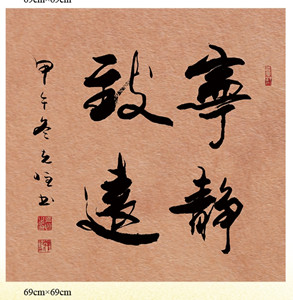 69cm×69cm
寧靜
致遠
甲午冬
書
69cm×69cm